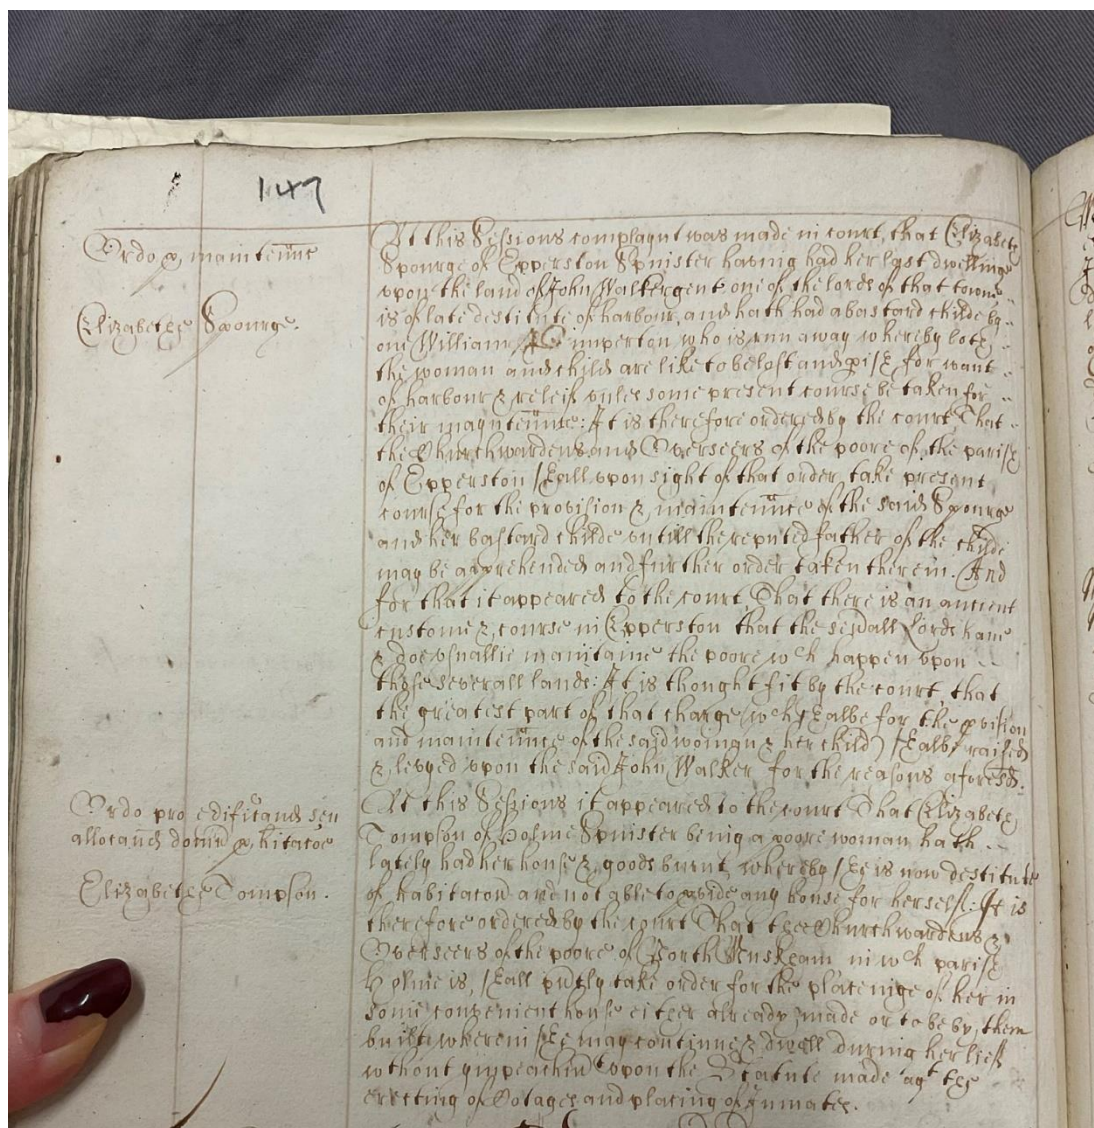 147
Ordo p maintenñce
Elizabethe Spourge.
At this Sessions complaynt was made in court, that Elizabeth
Spourge of Epperston Spinister having had her last dwellinge
vpon the land of John Walker gent one of the lords of that towne
is of late destitute of harbour, and hath had a bastard childe by
one William Limperton who is run away whereby both
the woman and child are like to be lost and pish for want
of harbour & releif vnles some present course be taken for
their mayntenñce: It is therefore ordered by the court That
the Churchwardens and Overseers of the poore of the parish
of Epperston shall vpon sight of that order take present
course for the provision & maintenñce of the said Spourge
and her bastard childe vntill the reputed father of the childe
may be apprehended and further order taken therein. And
for that it appeared to the court That there is an ancient
custome & course in Epperston that the sevall lords have
& doe vsuallie maintaine the poore wch happen vpon
those severall lands: It is thought fit by the court that
the greatest part of that charge (wch shalbe for the pvision
and maintenñce of the said woman & her child) shalbe raised
& levyed vpon the said John Walker for the reasons aforesd.
Ordo pro edificand seu
allocand domu p hitacoe
Elizabethe Tompson.
At this Sessions it appeared to the court That Elizabeth
Tompson of Holme Spinister being a poore woman hath
lately had her house & goods burnt, whereby she is now destitute
of habitacon and not able to pvide any house for herself: It is
therefore ordered by the court That the Churchwardens &
Overseers of the poore of North Muskham in wch parish
Holme is, shall pñtly take order for the placeinge of her in
some convenient house either already made or to be by them
built wherein she may continue & dwell during her lief
without impeachmt vpon the Statute made agt the
erecting of Cotages and placing of Inmates.